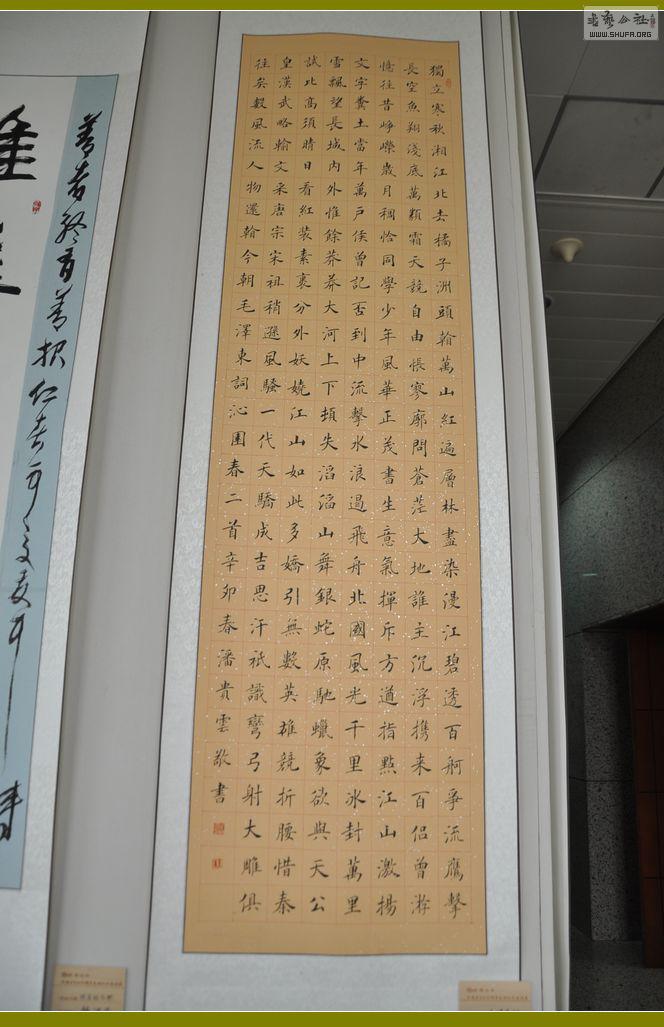 獨立寒秋湘江北去橘子洲頭看萬山紅遍層林盡染漫江碧透百舸爭流鷹擊
長空魚翔淺底萬類霜天競自由悵寥廓問蒼茫大地誰主沉浮攜来百侶曾游
憶往昔崢嶸歲月稠恰同學少年風華正茂書生意氣揮斥方遒指點江山激揚
文字糞土當年萬戶侯曾記否到中流擊水浪遏飛舟北國風光千里冰封萬里
雪飄望長城內外惟餘莽莽大河上下頓失滔滔山舞銀蛇原馳蠟象欲與天公
試比高須晴日看紅裝素裹分外妖嬈江山如此多嬌引無數英雄競折腰惜秦
皇漢武略輸文采唐宗宋祖稍遜風騷一代天驕成吉思汗祇識彎弓射大雕俱
往矣數風流人物還看今朝毛澤東詞沁園春二首辛卯春潘貴雲敬書
善者終有善报仁者
WWW.SHUFA.ORG